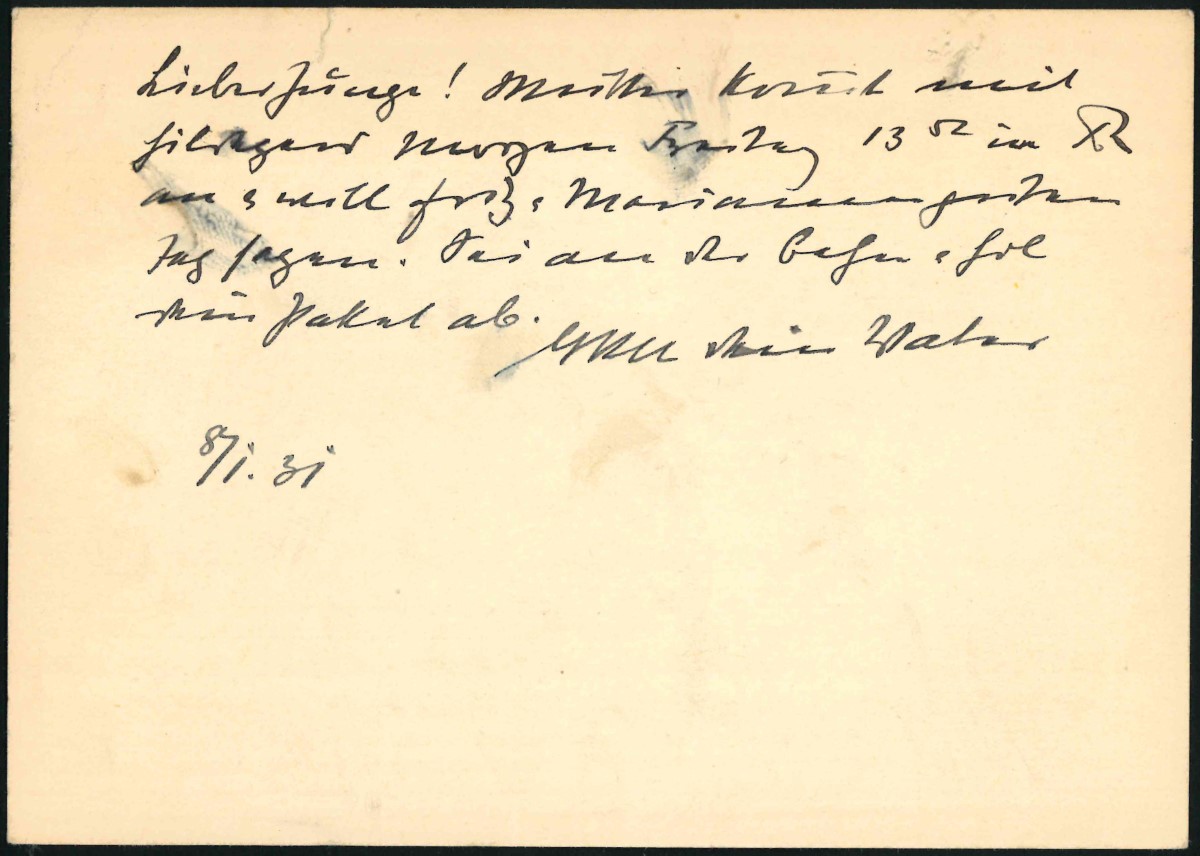 Lieber Junge! Mutter kommt mit
Hildegard morgen Freitag 13 52 in
an & will Fritz & Mariannen guten
Tag sagen. Sei an der Bahn & hol
dein Paket ab.
Dein Vater
8/1. 31